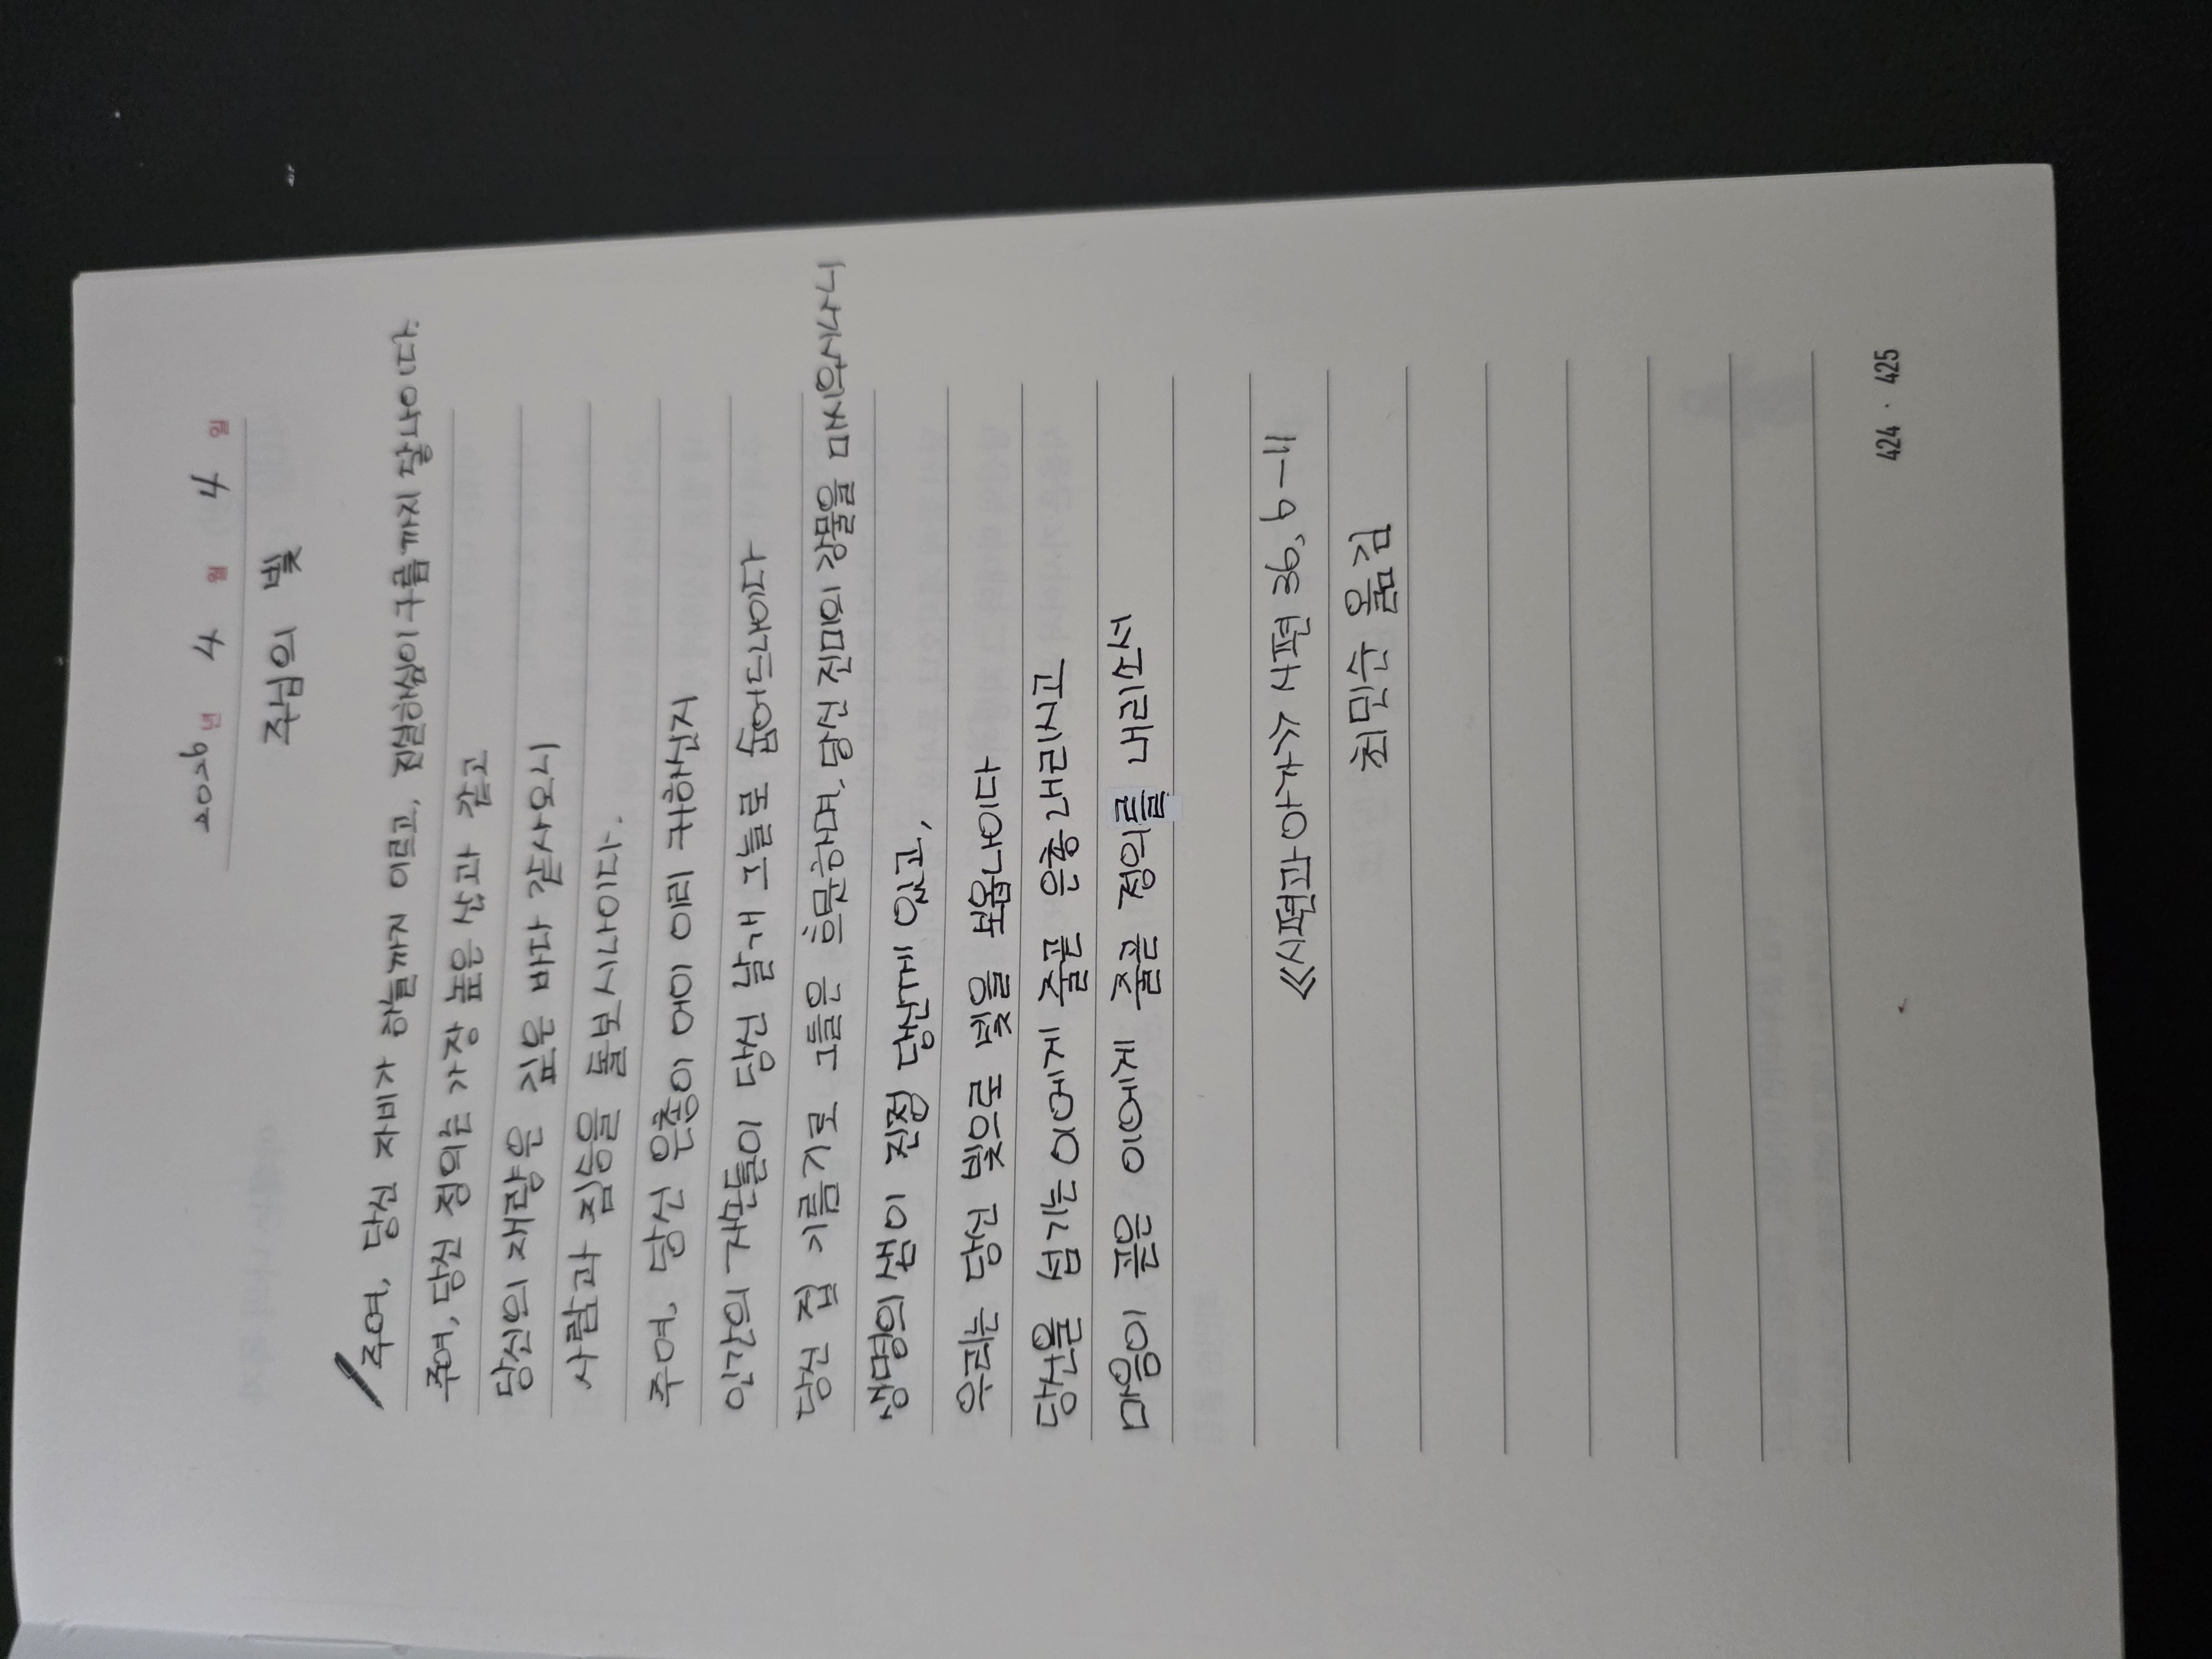 2026년 4월 4일
주님의 빛
주여, 당신 자비가 하늘까지 이르고, 진실하심이 구름까지 닿나이다.
주여, 당신 정의는 가장 높은 산과 같고
당신의 재량은 깊은 바다 같사오니
사람과 짐승을 돌보시나이다.
주여, 당신 은총이 어이 이리 귀하신지
인간의 자손들이 당신 날개 그늘로 숨어드나이다
당신 집 기름기로 그들은 흐뭇하며, 당신 진미의 강물을 마시우시나니
생명의 샘이 진정 당신께 있고,
우리는 당신 빛으로 빛을 보옵나이다
당신을 섬기는 이에게 줄곧 은총 내리시고
마음이 곧은 이에게 줄곧 정의를 내리소서
《시편과아가》 시편 36, 6-11
최민순 옮김
424 · 425